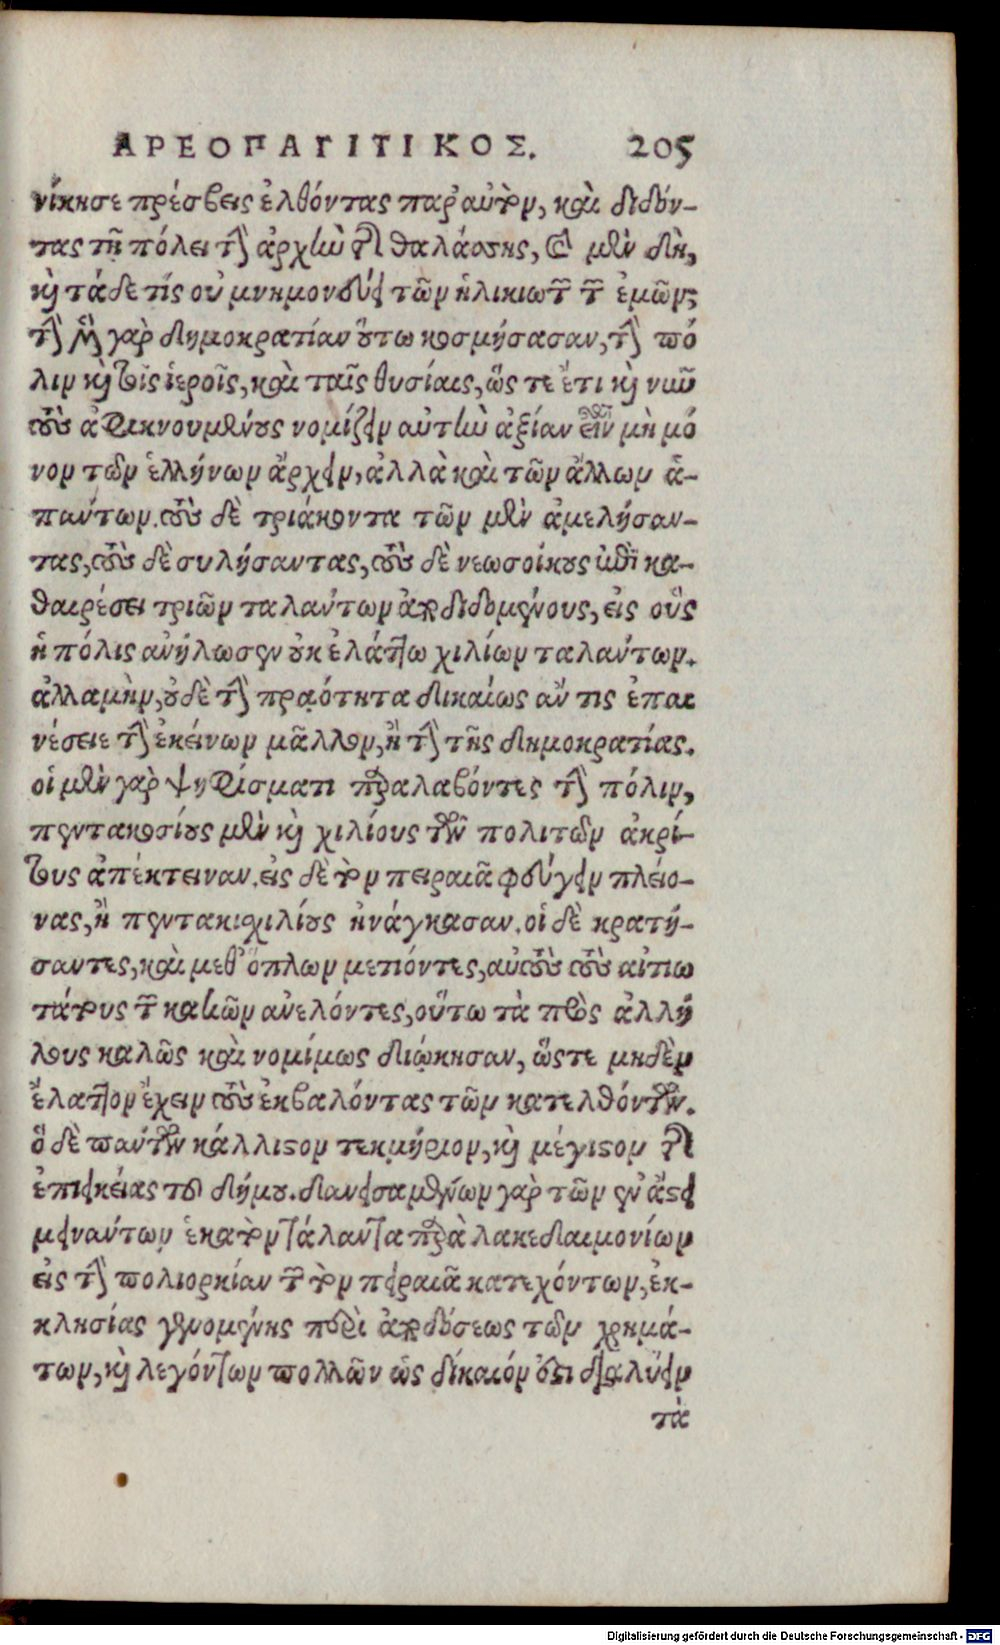 ΑΡΕΟΠΑΓΙΤΙΚΟΣ. 205
νίκησε πρέσβεις ἐλθόντας παρ' αὐτὸν, καὶ διδόν-
τας τῇ πόλει τὴν ἀρχὴν τῆς θαλάσσης, καὶ μὲν δὴ,
καὶ τάδε τίς οὐ μνημονεύει τῶν ἡλικιωτῶν τῶν ἐμῶν;
τὴν μὲν γὰρ δημοκρατίαν οὕτω κοσμήσασαν, τὴν πό
λιν καὶ τοῖς ἱεροῖς, καὶ ταῖς θυσίαις, ὥς τε ἔτι καὶ νῦν
τοὺς ἀφικνουμένους νομίζειν αὐτὴν ἀξίαν εἶναι μὴ μό
νον τῶν ἑλλήνων ἄρχειν, ἀλλὰ καὶ τῶν ἄλλων ἁ-
πάντων. τοὺς δὲ τριάκοντα τῶν μὲν ἀμελήσαν-
τας, τοὺς δὲ συλήσαντας, τοὺς δὲ νεωσοίκους ἐπὶ κα-
θαιρέσει τριῶν ταλάντων ἀποδιδομένους, εἰς οὓς
ἡ πόλις ἀνήλωσεν οὐκ ἐλάττω χιλίων ταλάντων.
ἀλλαμὴν, οὐδὲ τὴν πραότητα δικαίως ἄν τις ἐπαι
νέσειε τὴν ἐκείνων μᾶλλον, ἢ τὴν τῆς δημοκρατίας.
οἱ μὲν γὰρ ψηφίσματι παραλαβόντες τὴν πόλιν,
πεντακοσίους μὲν καὶ χιλίους τῶν πολιτῶν ἀκρί-
τους ἀπέκτειναν. εἰς δὲ τὸν πειραιᾶ φεύγειν πλείο-
νας, ἢ πεντακισχιλίους ἠνάγκασαν. οἱ δὲ κρατή-
σαντες, καὶ μεθ' ὅπλων μετιόντες, αὐτοὺς τοὺς αἰτιω
τάτους τῶν κακῶν ἀνελόντες, οὕτω τὰ πρὸς ἀλλή
λους καλῶς καὶ νομίμως διῴκησαν, ὥστε μηδὲν
ἔλαττον ἔχειν τοὺς ἐκβαλόντας τῶν κατελθόντων.
ὃ δὲ πάντων κάλλιστον τεκμήριον, καὶ μέγιστον τῆς
ἐπιεικείας τοῦ δήμου. δανεισαμένων γὰρ τῶν ἐν ἄστει
μεινάντων ἑκατὸν τάλαντα παρὰ λακεδαιμονίων
εἰς τὴν πολιορκίαν τῶν τὸν πειραιᾶ κατεχόντων, ἐκ-
κλησίας γενομένης περὶ ἀποδόσεως τῶν χρημά-
των, καὶ λεγόντων πολλῶν ὡς δίκαιόν ἐστι διαλύειν
τὰ
Digitalisierung gefördert durch die Deutsche Forschungsgemeinschaft - DFG